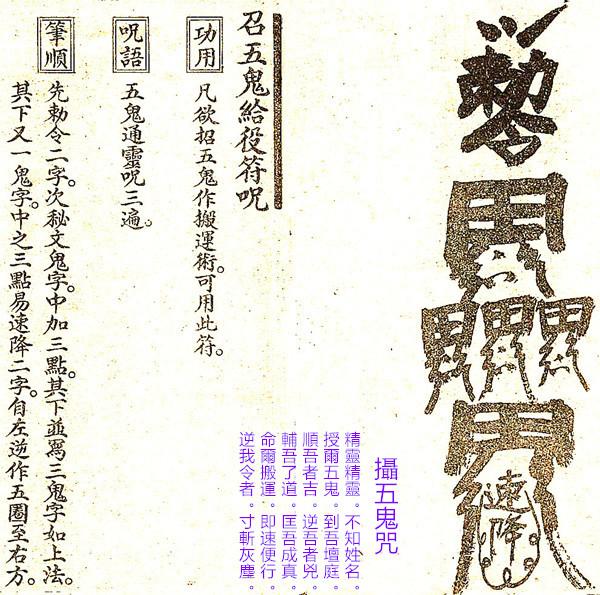 勅令
速降
攝五鬼咒
精靈精靈。不知姓名。
授爾五鬼。到吾壇庭。
順吾者吉。逆吾者兇。
輔吾了道。匡吾成真。
命爾搬運。即速便行。
逆我令者。寸斬灰塵。
召五鬼給役符呪
功用
凡欲招五鬼作搬運術。可用此符。
呪語
五鬼通靈呪三遍。
筆順
先勅令二字。次秘文鬼字。中加三點。其下並寫三鬼字如上法。
其下又一鬼字。中之三點易速降二字。自左逆作五圈至右方。